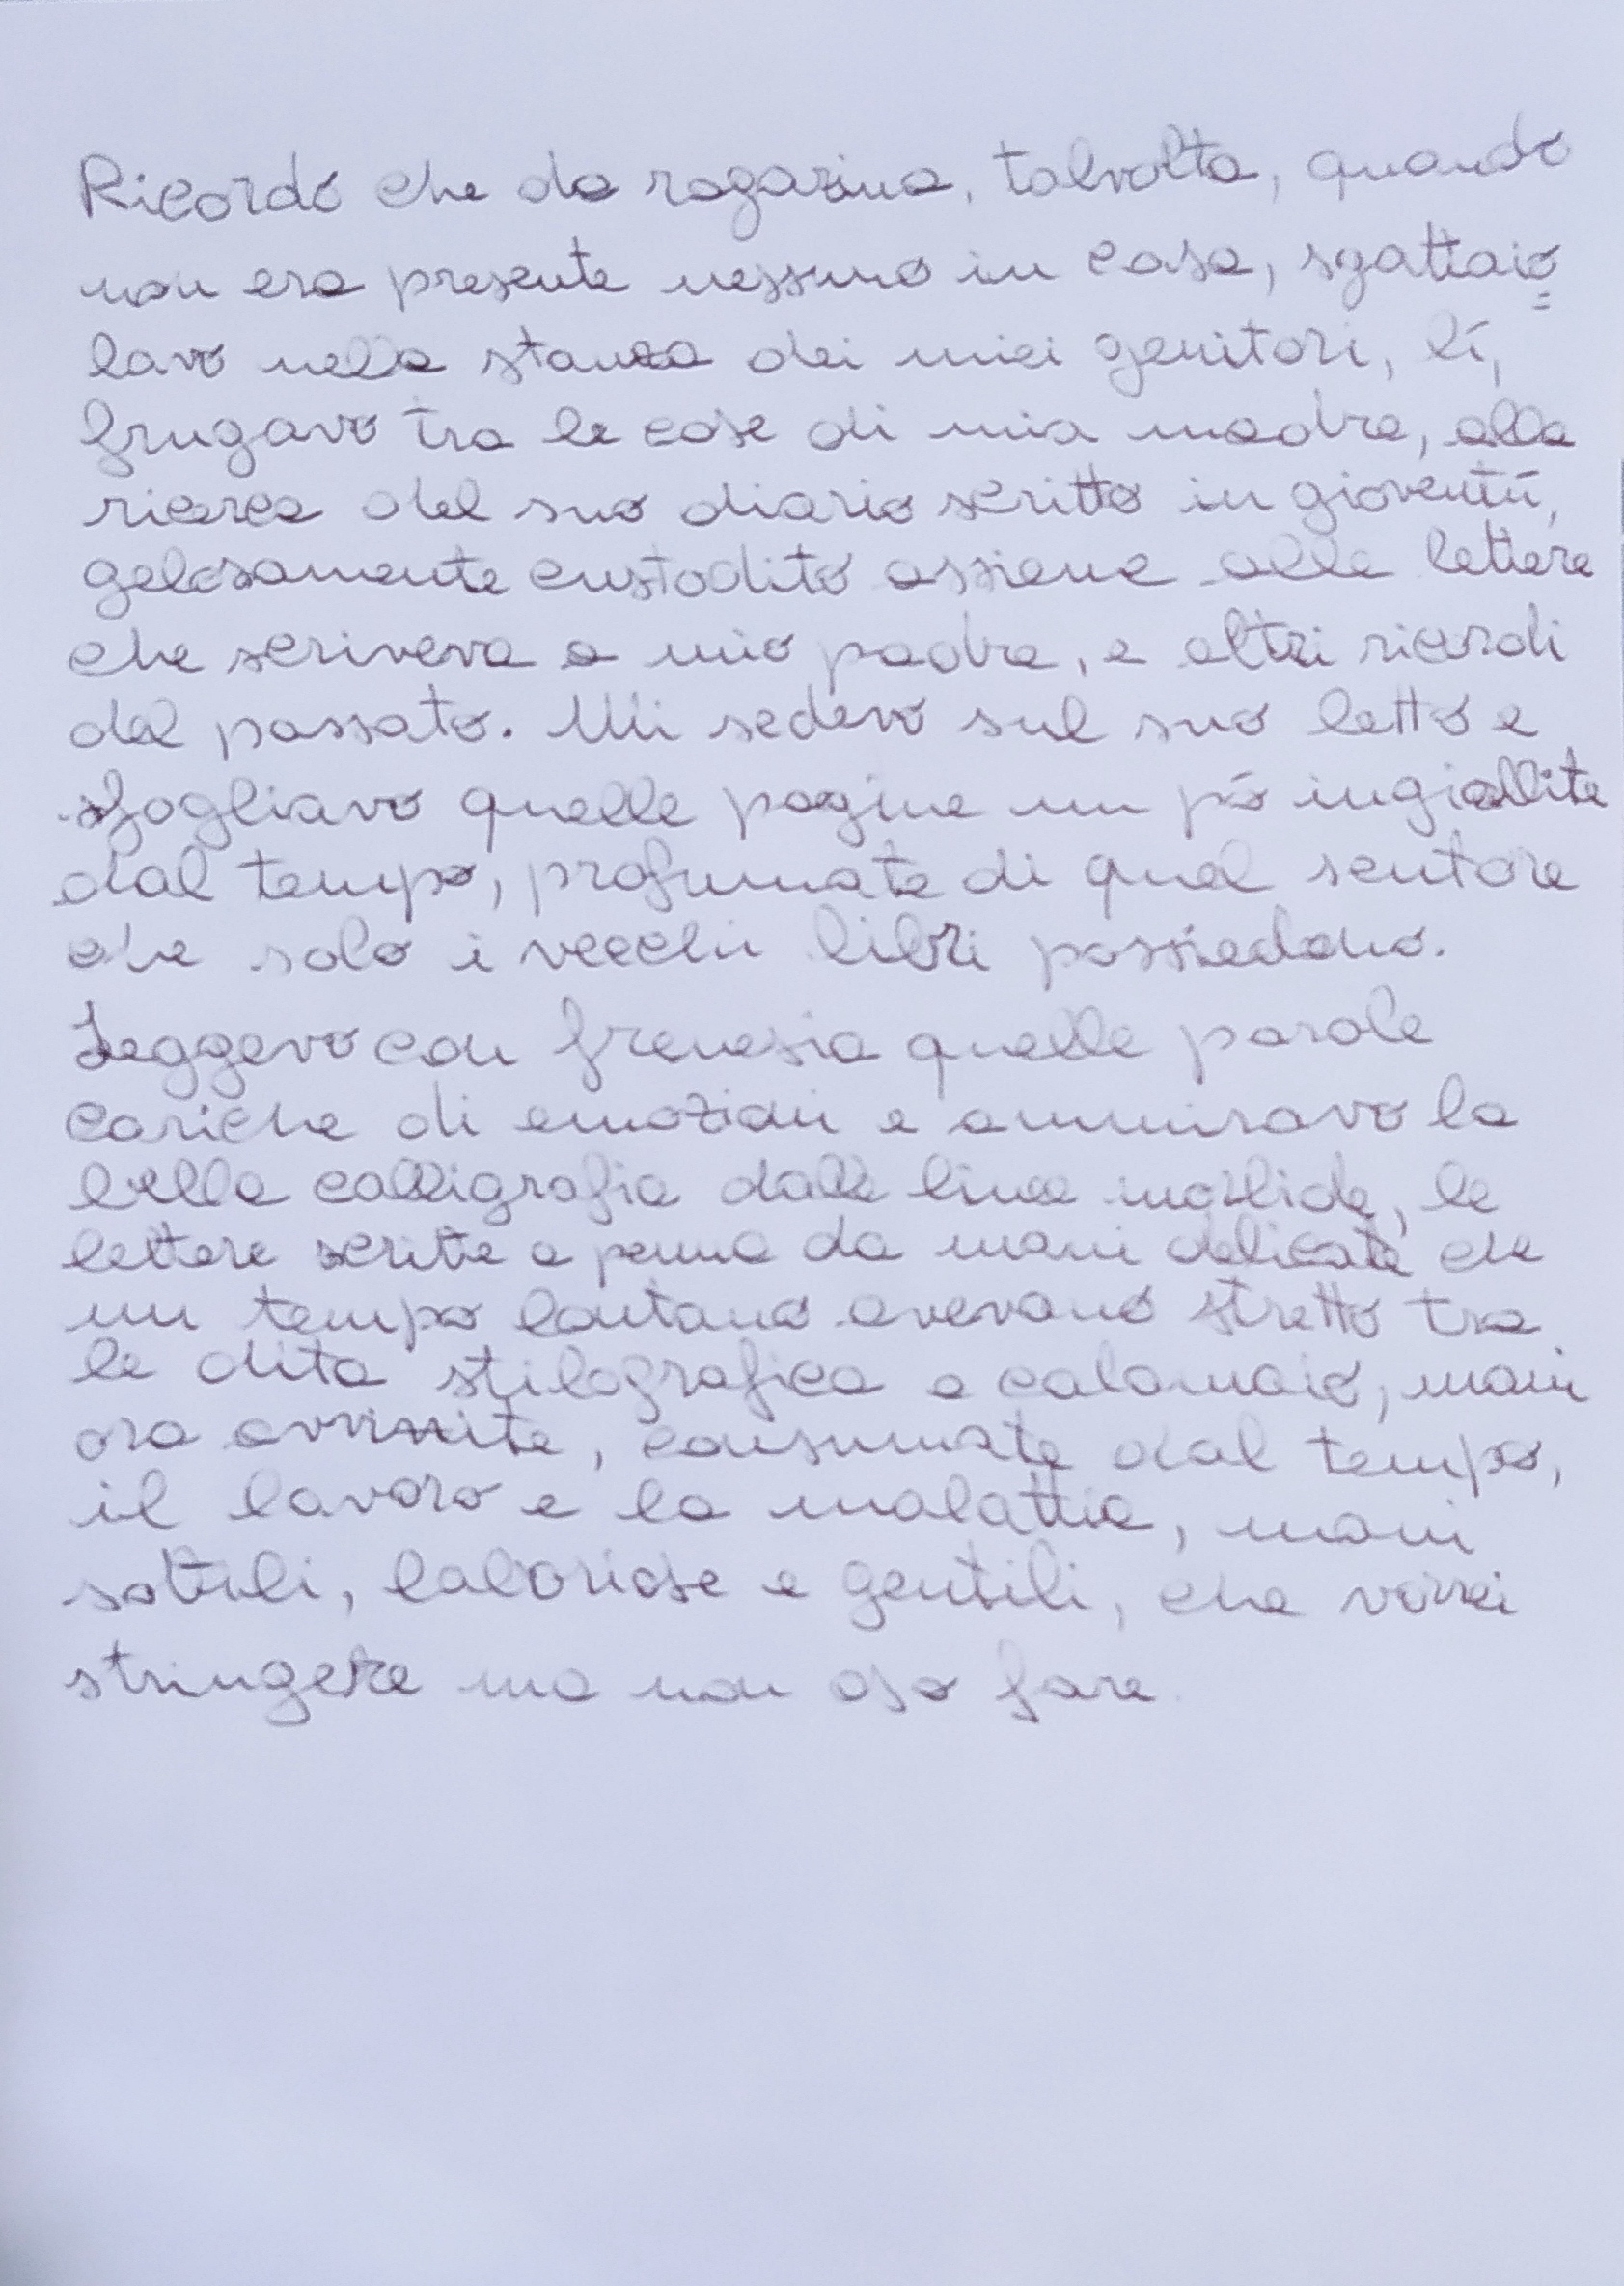 Ricordo che da ragazzina, talvolta, quando
non era presente nessuno in casa, sgattaio=
lavo nella stanza dei miei genitori, lí,
frugavo tra le cose di mia madre, alla
ricerca del suo diario scritto in gioventú,
gelosamente custodito assieme alle lettere
che scriveva a mio padre, e altri ricordi
del passato. Mi sedevo sul suo letto e
sfogliavo quelle pagine un pó ingiallite
dal tempo, profumate di quel sentore
che solo i vecchi libri possiedono.
Leggevo con frenesia quelle parole
cariche di emozioni e ammiravo la
bella calligrafia dalle linee morbide, le
lettere scritte a penna da mani delicate che
un tempo lontano avevano stretto tra
le dita stilografica e calamaio, mani
ora avvizzite, consumate dal tempo,
il lavoro e la malattia, mani
sottili, laboriose e gentili, che vorrei
stringere ma non oso fare.